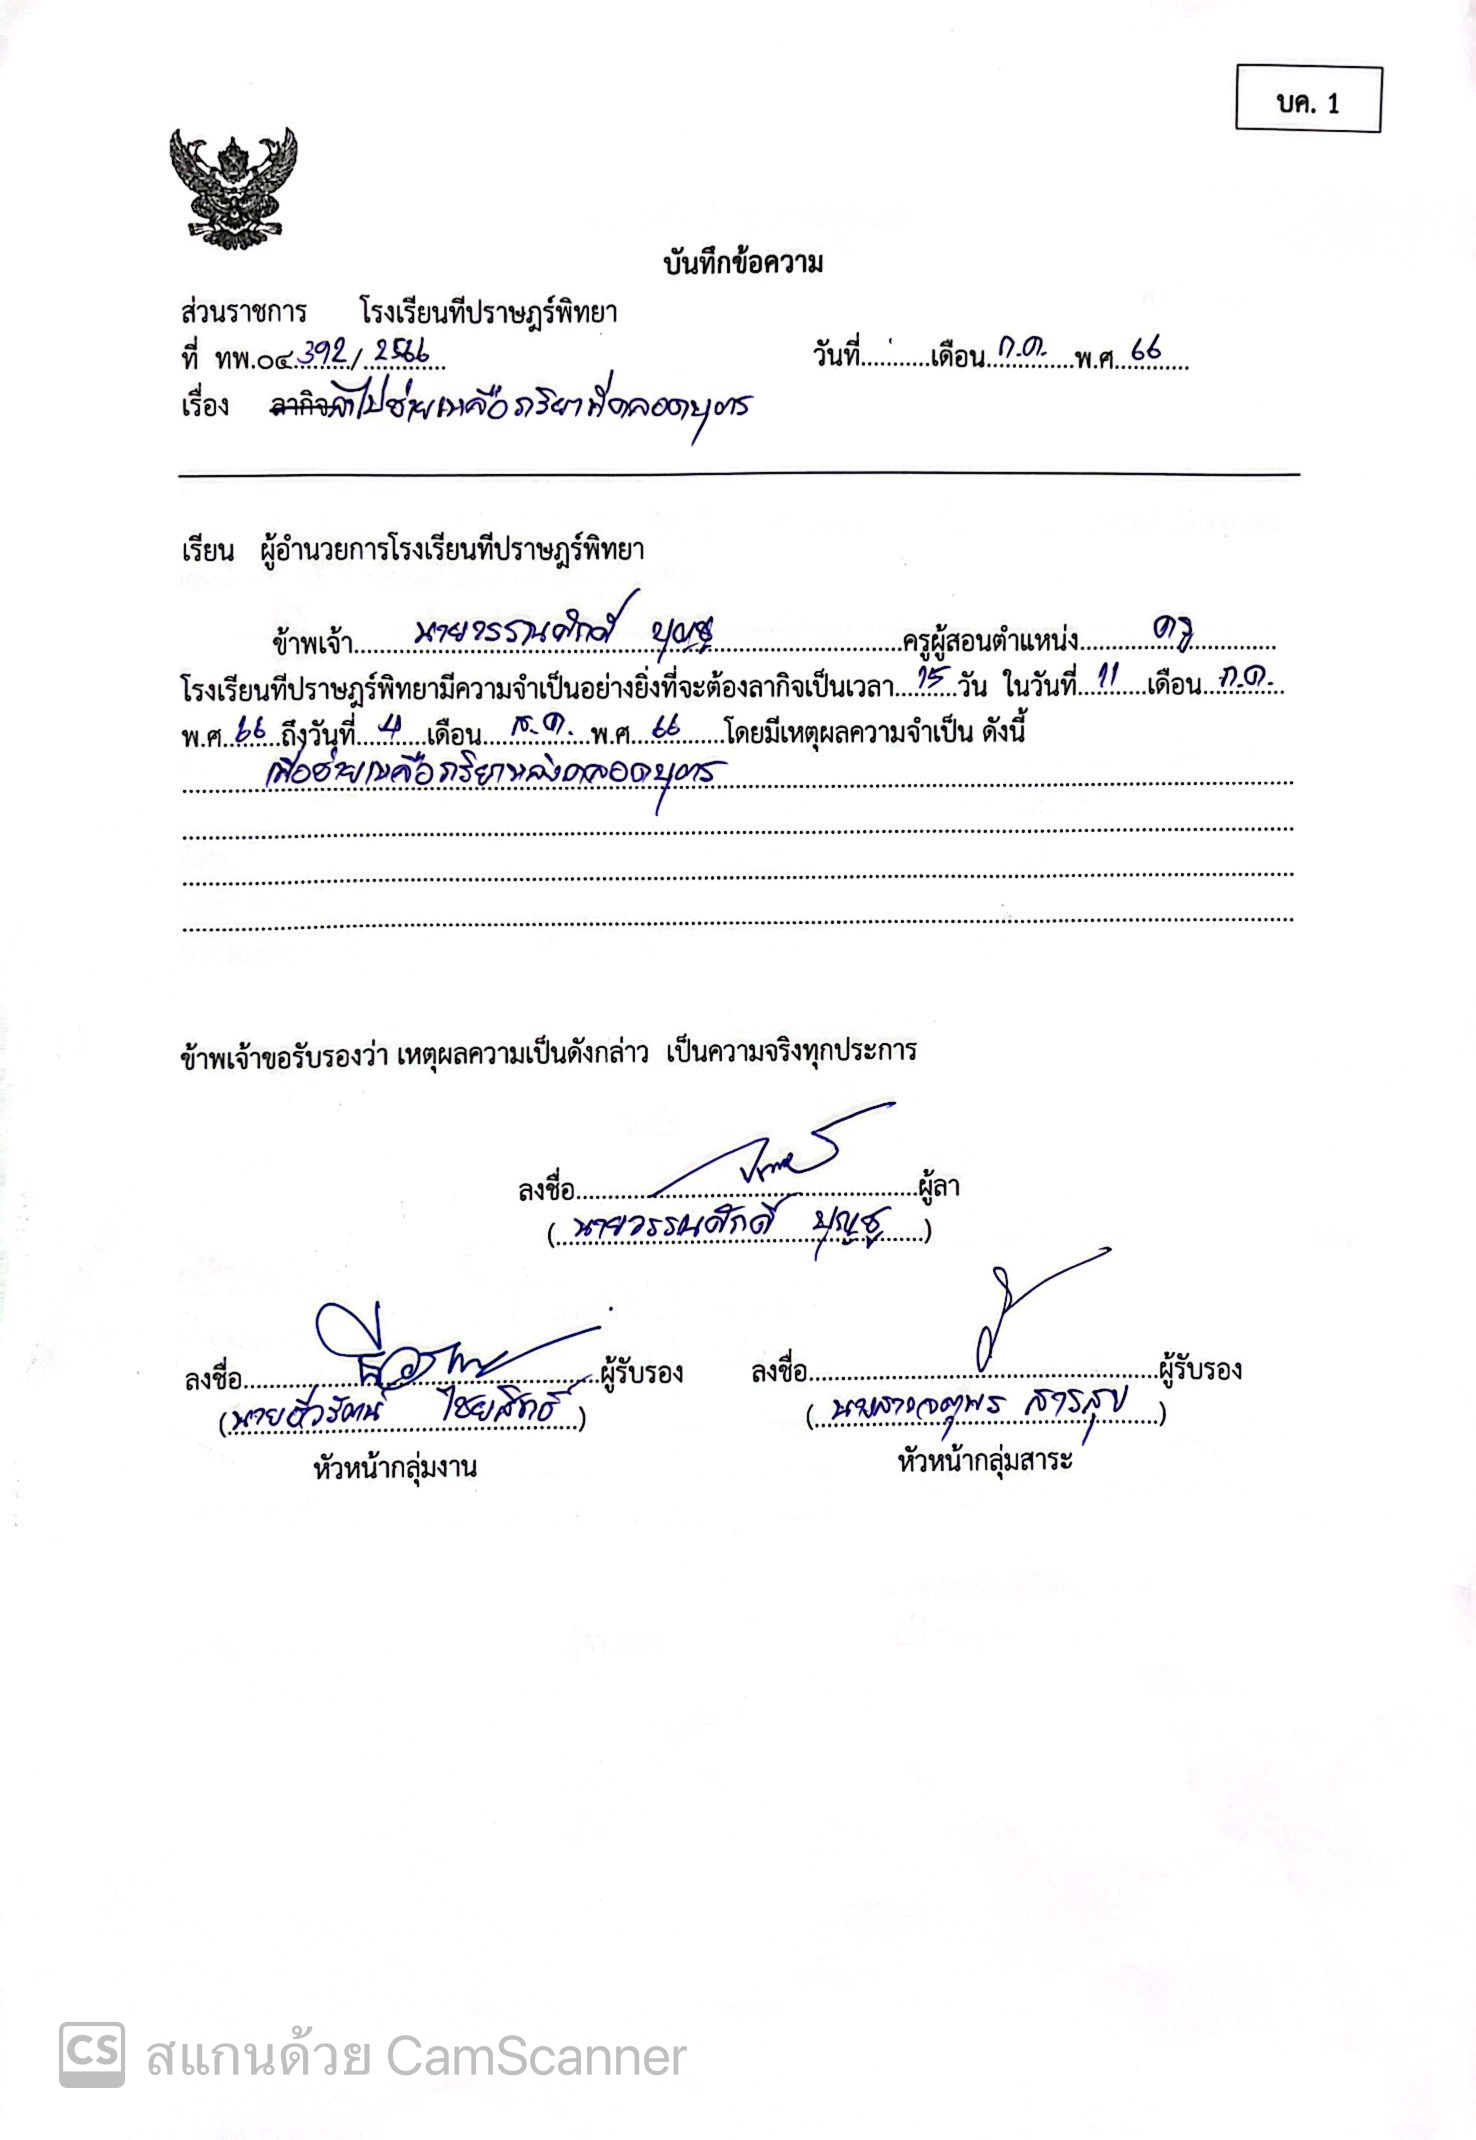 บค. 1
บันทึกข้อความ
ส่วนราชการ โรงเรียนทีปราษฎร์พิทยา
ที่ ทพ.๐๔.392/2566 วันที่...........เดือน ก.ค. พ.ศ. 66
เรื่อง ลากิจลาไปช่วยเหลือภริยาที่คลอดบุตร
เรียน ผู้อำนวยการโรงเรียนทีปราษฎร์พิทยา
ข้าพเจ้า นายวรรณศักดิ์ บุญชู ครูผู้สอนตำแหน่ง ครู
โรงเรียนทีปราษฎร์พิทยามีความจำเป็นอย่างยิ่งที่จะต้องลากิจเป็นเวลา 15 วัน ในวันที่ 11 เดือน ก.ค.
พ.ศ. 66 ถึงวันที่ 4 เดือน ส.ค. พ.ศ. 66 โดยมีเหตุผลความจำเป็น ดังนี้
เพื่อช่วยเหลือภริยาหลังคลอดบุตร
ข้าพเจ้าขอรับรองว่า เหตุผลความเป็นดังกล่าว เป็นความจริงทุกประการ
ลงชื่อ ผู้ลา
(นายวรรณศักดิ์ บุญชู)
ลงชื่อ ผู้รับรอง ลงชื่อ ผู้รับรอง
(นาย ไชยสิทธิ์) (นางสาวจตุพร สารสุข)
หัวหน้ากลุ่มงาน หัวหน้ากลุ่มสาระ
CS สแกนด้วย CamScanner